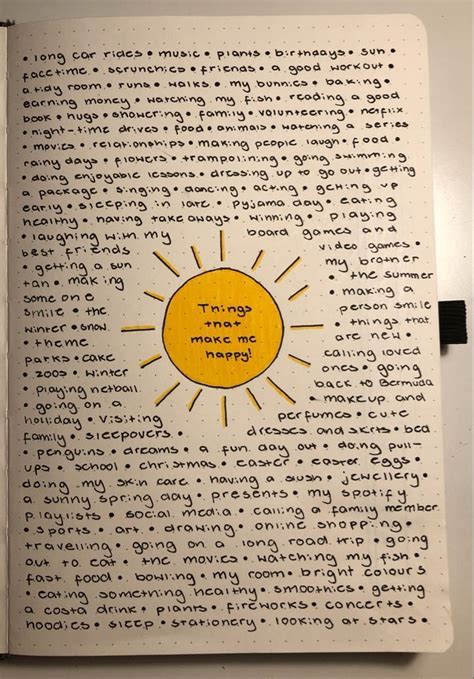 • long car rides • music • plants • birthdays • sun •
facetime • scrunchies • friends • a good workout •
a tidy room • runs • walks • my bunnies • baking •
earning money • watching my fish • reading a good
book • hugs • showering • family • volunteering • netflix
• night-time drives • food • animals • watching a series
• movies • relationships • making people laugh • food •
rainy days • flowers • trampolining • going swimming
• doing enjoyable lessons • dressing up to go out • getting
a package • singing • dancing • acting • getting up
early • sleeping in late • pyjama day • eating
healthy • having takeaways • winning • playing
• laughing with my board games and
best friends video games •
• getting a sun my brother
tan • making • the summer
someone • making a
smile • the person smile
winter • snow • things that
• theme are new •
parks • cake calling loved
• zoos • winter ones • going
• playing netball back to Bermuda
• going on a • makeup and
holliday • visiting perfumes • cute
family • sleepovers • dresses and skirts • bed
Things
that
make me
happy!
• penguins • dreams • a fun day out • doing pull-
ups • school • christmas • easter • easter eggs •
doing my skin care • having a slush • jewellery •
a sunny spring day • presents • my spotify
playlists • social media • calling a family member
• sports • art • drawing • online shopping •
travelling • going on a long road trip • going
out to eat • the movies • watching my fish •
fast food • bowling • my room • bright colours
• eating something healthy • smoothies • getting
a costa drink • plants • fireworks • concerts •
hoodies • sleep • stationery • looking at stars •